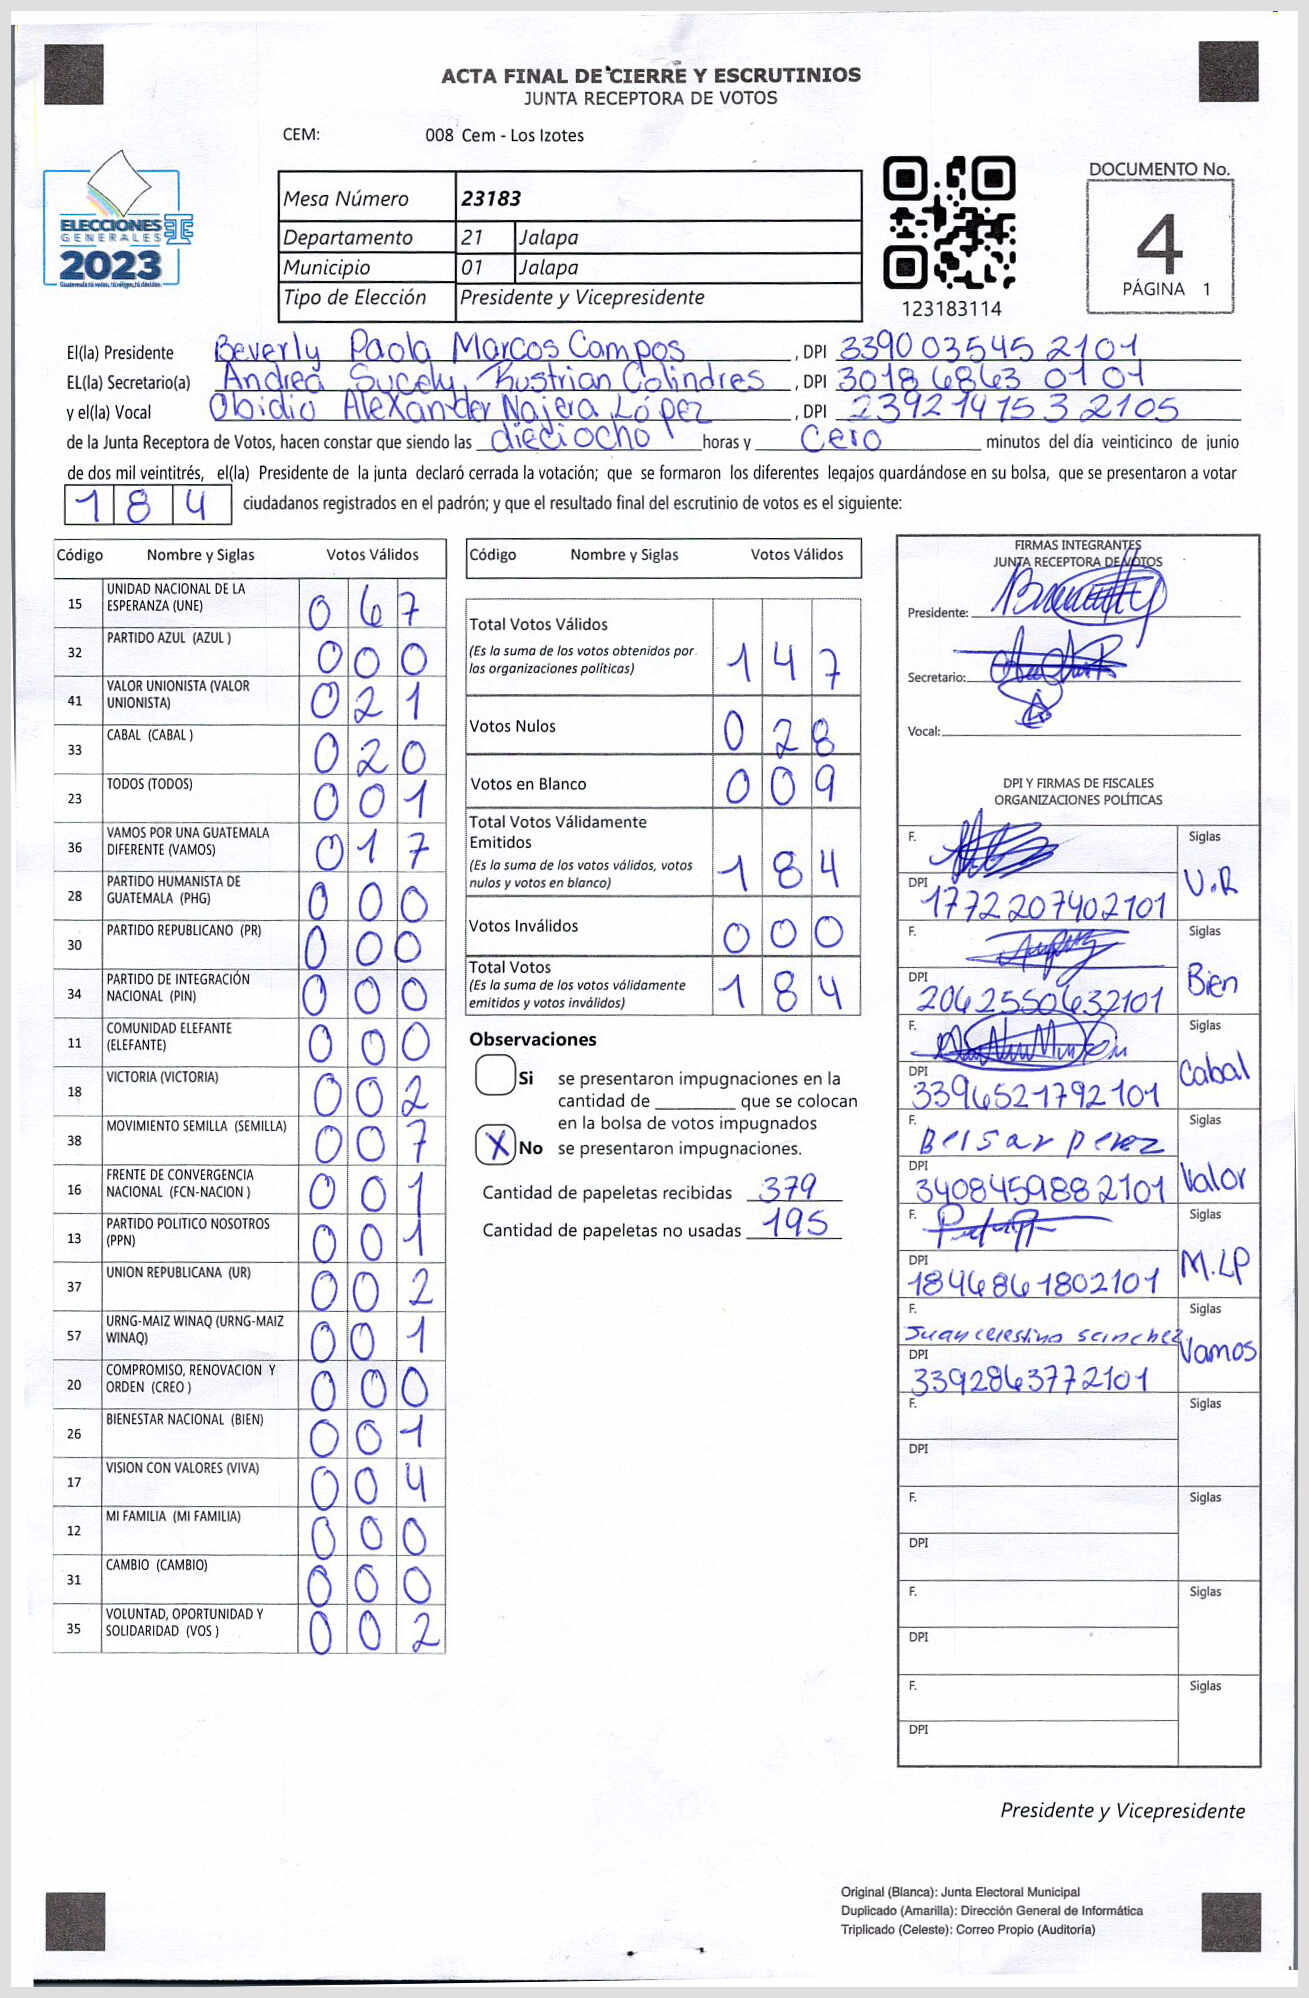 ACTA FINAL DE CIERRE Y ESCRUTINIOS
JUNTA RECEPTORA DE VOTOS
CEM: 008 Cem - Los Izotes
ELECCIONES
GENERALES
2023
Mesa Número 23183
Departamento 21 Jalapa
Municipio 01 Jalapa
Tipo de Elección Presidente y Vicepresidente
123183114
DOCUMENTO No.
4
PÁGINA 1
El(la) Presidente Beverly Paola Marcos Campos, DPI 339003545 2101
EL(la) Secretario(a) Andrea Sucely Kustrian Colindres, DPI 3018 6863 0101
y el(la) Vocal Obidio Alexander Najera López, DPI 239214153 2105
de la Junta Receptora de Votos, hacen constar que siendo las dieciocho horas y Cero minutos del día veinticinco de junio
de dos mil veintitrés, el(la) Presidente de la junta declaró cerrada la votación; que se formaron los diferentes legajos quardándose en su bolsa, que se presentaron a votar
184 ciudadanos registrados en el padrón; y que el resultado final del escrutinio de votos es el siguiente:
Código Nombre y Siglas Votos Válidos
15 UNIDAD NACIONAL DE LA ESPERANZA (UNE) 067
32 PARTIDO AZUL (AZUL ) 000
41 VALOR UNIONISTA (VALOR UNIONISTA) 021
33 CABAL (CABAL ) 020
23 TODOS (TODOS) 001
36 VAMOS POR UNA GUATEMALA DIFERENTE (VAMOS) 017
28 PARTIDO HUMANISTA DE GUATEMALA (PHG) 000
30 PARTIDO REPUBLICANO (PR) 000
34 PARTIDO DE INTEGRACIÓN NACIONAL (PIN) 000
11 COMUNIDAD ELEFANTE (ELEFANTE) 000
18 VICTORIA (VICTORIA) 002
38 MOVIMIENTO SEMILLA (SEMILLA) 007
16 FRENTE DE CONVERGENCIA NACIONAL (FCN-NACION ) 001
13 PARTIDO POLITICO NOSOTROS (PPN) 001
37 UNION REPUBLICANA (UR) 002
57 URNG-MAIZ WINAQ (URNG-MAIZ WINAQ) 001
20 COMPROMISO, RENOVACION Y ORDEN (CREO ) 000
26 BIENESTAR NACIONAL (BIEN) 001
17 VISION CON VALORES (VIVA) 004
12 MI FAMILIA (MI FAMILIA) 000
31 CAMBIO (CAMBIO) 000
35 VOLUNTAD, OPORTUNIDAD Y SOLIDARIDAD (VOS ) 002
Código Nombre y Siglas Votos Válidos
Total Votos Válidos 147
(Es la suma de los votos obtenidos por
las organizaciones políticas)
Votos Nulos 028
Votos en Blanco 009
Total Votos Válidamente
Emitidos 184
(Es la suma de los votos válidos, votos
nulos y votos en blanco)
Votos Inválidos 000
Total Votos 184
(Es la suma de los votos válidamente
emitidos y votos inválidos)
Observaciones
Si se presentaron impugnaciones en la
cantidad de ________ que se colocan
en la bolsa de votos impugnados
X No se presentaron impugnaciones.
Cantidad de papeletas recibidas 379
Cantidad de papeletas no usadas 195
FIRMAS INTEGRANTES
JUNTA RECEPTORA DE VOTOS
Presidente:
Secretario:
Vocal:
DPI Y FIRMAS DE FISCALES
ORGANIZACIONES POLÍTICAS
F. Siglas
DPI 1772207402101 U.R
F. Siglas
DPI 2062550632101 Bien
F. Siglas
DPI 3396521792101 Cabal
F. Belsar perez Siglas
DPI 3408459882101 Valor
F. Siglas
DPI 1846861802101 M.LP
F. Juan celestino sanchez Siglas
DPI 3392863772101 Vamos
F. Siglas
DPI
F. Siglas
DPI
F. Siglas
DPI
F. Siglas
DPI
Presidente y Vicepresidente
Original (Blanca): Junta Electoral Municipal
Duplicado (Amarilla): Dirección General de Informática
Triplicado (Celeste): Correo Propio (Auditoría)